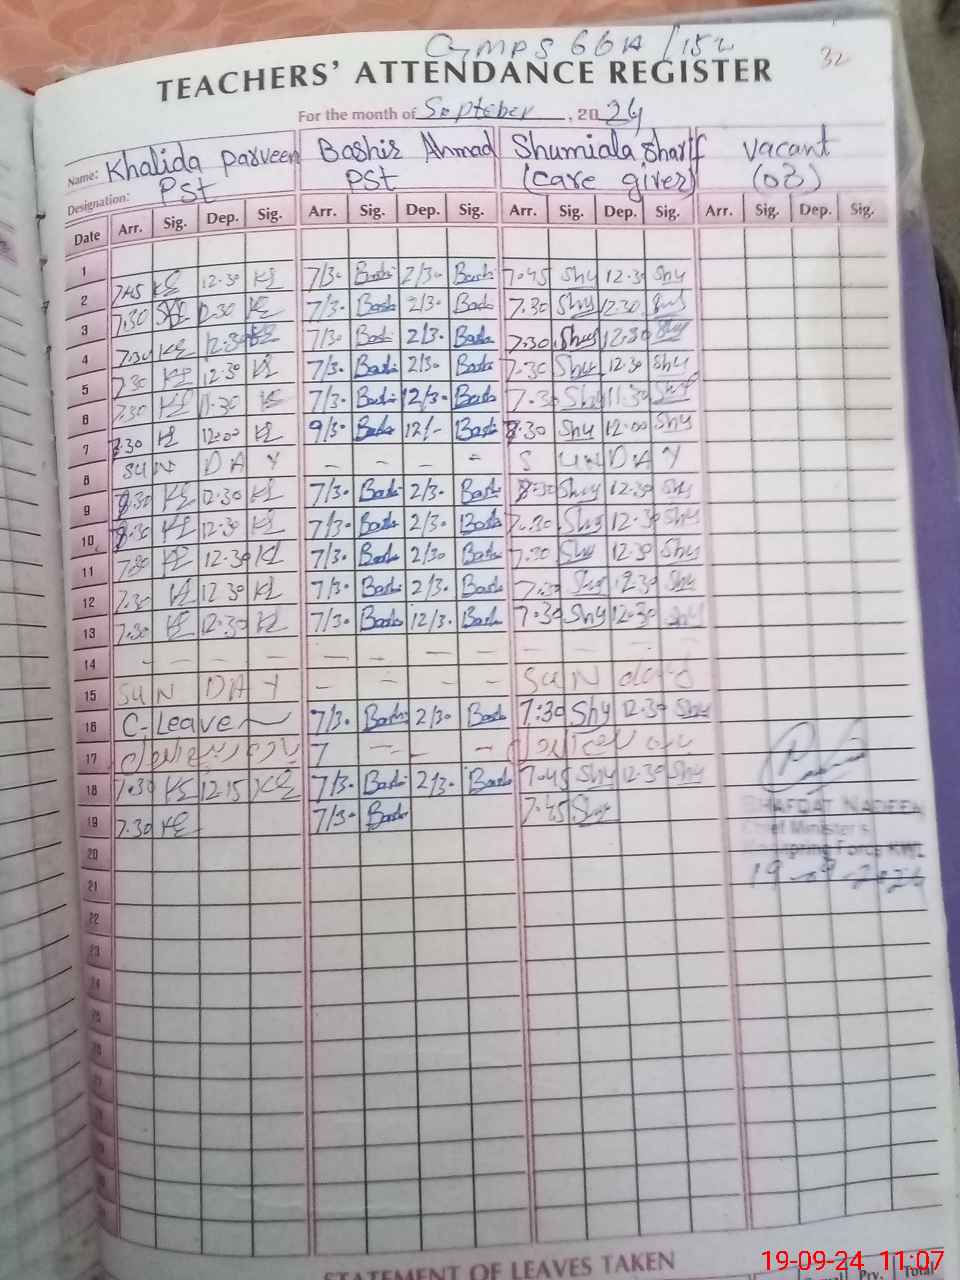 GMPS 66A/15L
32
TEACHERS' ATTENDANCE REGISTER
For the month of September, 2024
Name: Khalida Parveen Bashir Ahmad Shumiala Sharif Vacant
Designation: PST PST (care giver)
Date Arr. Sig. Dep. Sig. Arr. Sig. Dep. Sig. Arr. Sig. Dep. Sig. Arr. Sig. Dep. Sig.
1
2 7.45 KE 12.30 KE 7/30 Bash 2/30 Bash 7.45 Shy 12.30 Shy
3 7.30 12.30 KE 7/30 Bash 2/30 Bash 7.30 Shy 12.30
4 7.30 KE 12.30 KE 7/30 Bash 2/30 Bash 7.30 Shy 12.30 Shy
5 7.30 KE 12.30 KE 7/30 Bash 2/30 Bash 7.30 Shy 12.30 Shy
6 7.30 KE 11.30 KE 7/30 Bash 12/30 Bash 7.30 Shy 11.30
7 8.30 KE 12.00 KE 9/30 Bash 12/- Bash 8.30 Shy 12.00 Shy
8 SUN DAY - - - - SUNDAY
9 8.30 KE 12.30 KE 7/30 Bash 2/30 Bash 8.30 Shy 12.30 Shy
10 8.30 KE 12.30 KE 7/30 Bash 2/30 Bash 7.30 Shy 12.30 Shy
11 7.30 KE 12.30 KE 7/30 Bash 2/30 Bash 7.30 Shy 12.30 Shy
12 7.30 KE 12.30 KE 7/30 Bash 2/30 Bash 7.30 Shy 12.30 Shy
13 7.30 KE 12.30 KE 7/30 Bash 12/30 Bash 7.30 Shy 12.30
14 - - - - - - - - - - - -
15 SUN DAY - - - - SUN day
16 C-Leave 7/30 Bash 2/30 Bash 7:30 Shy 12.30 Shy
17
18 7.30 KE 12.15 KE 7/30 Bash 2/30 Bash 7.45 Shy 12.30 Shy
19 7.30 KE 7/30 Bash 7.45 Shy
SHAFQAT NADEEM
Chief Minister's
Monitoring Force KWL
19-09-2024
20
21
22
23
24
25
26
STATEMENT OF LEAVES TAKEN
Prv. Total
19-09-24 11:07